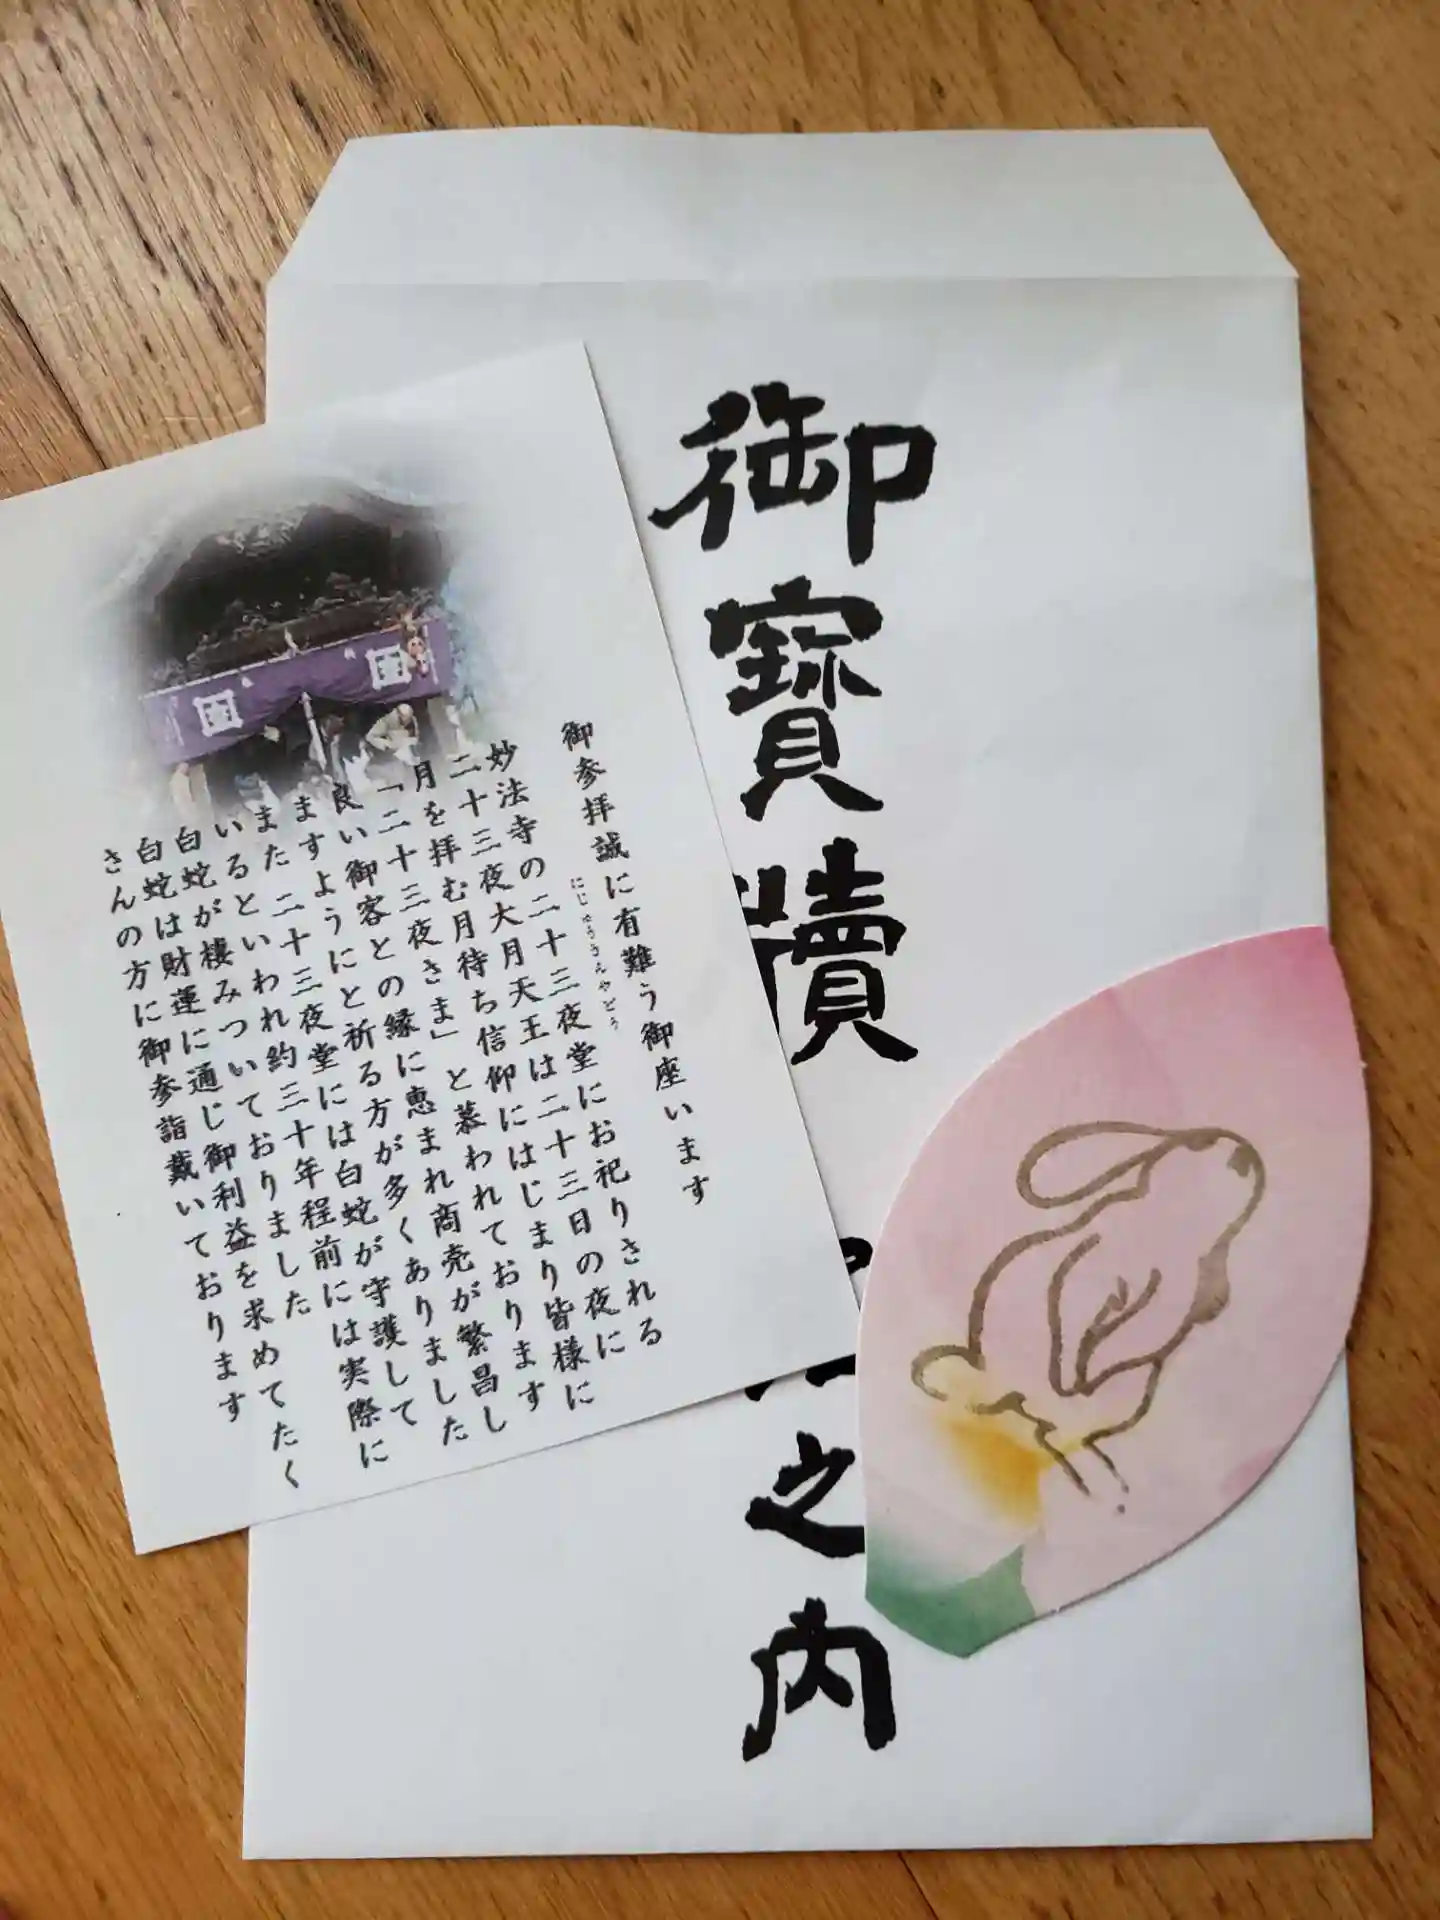 御参拝誠に有難う御座います
にじゅうさんやどう
妙法寺の二十三夜堂にお祀りされる
二十三夜大月天王は二十三日の夜に
月を拝む月待ち信仰にはじまり皆様に
「二十三夜さま」と慕われております
良い御客との縁に恵まれ商売が繁昌し
ますようにと祈る方が多くありました
また二十三夜堂には白蛇が守護して
いるといわれ約三十年程前には実際に
白蛇が棲みついておりました
白蛇は財運に通じ御利益を求めてたく
さんの方に御参詣戴いております
御寶牘
之内